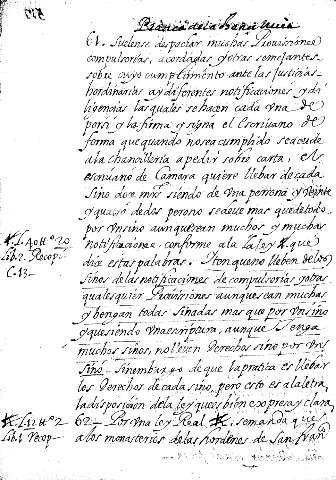 61. Suelense despachar muchas Provisiones
compulsorias, acordadas y otras semejantes
sobre cuyo cumplimento ante las Justicias
hordinarias ay diferentes notificaciones y di
ligencias las quales se hacen cada vna de
por si y la firma y signa el Escriuano de
forma que quando no se a cumplido se acude
a la Chancilleria a pedir sobre carta, el
escriuano de Camara quiere llebar de cada
sino dos mrs siendo de vna persona y veinte
y quatro de dos pero no se deue mas que de todo
por vn sino aunque sean muchos y muchas
notificaciones conforme a la ley que
dice estas palabras. Iten que no lleben de los
Sinos de las notificaciones de compulsorias y otras
qualesquier Provisiones aunque sean muchas
y bengan todas sinadas mas que por vn sino
y que siendo vna escriptura, aunque tenga
muchos sinos, no lleuen derechos sino por vn
sino. Sinembargo de que la pratica es llebar
los derechos de cada sino, pero esto es a la letra
la disposicion de la ley que es bien expresa y clara
62. Por vna ley Real se manda que
a los monasterios de las hordenes de San fran
L. 40 tto 20
Lib. 2. Recop.
C. 13
L. 12 tto 2
Lib. 1 Recop.